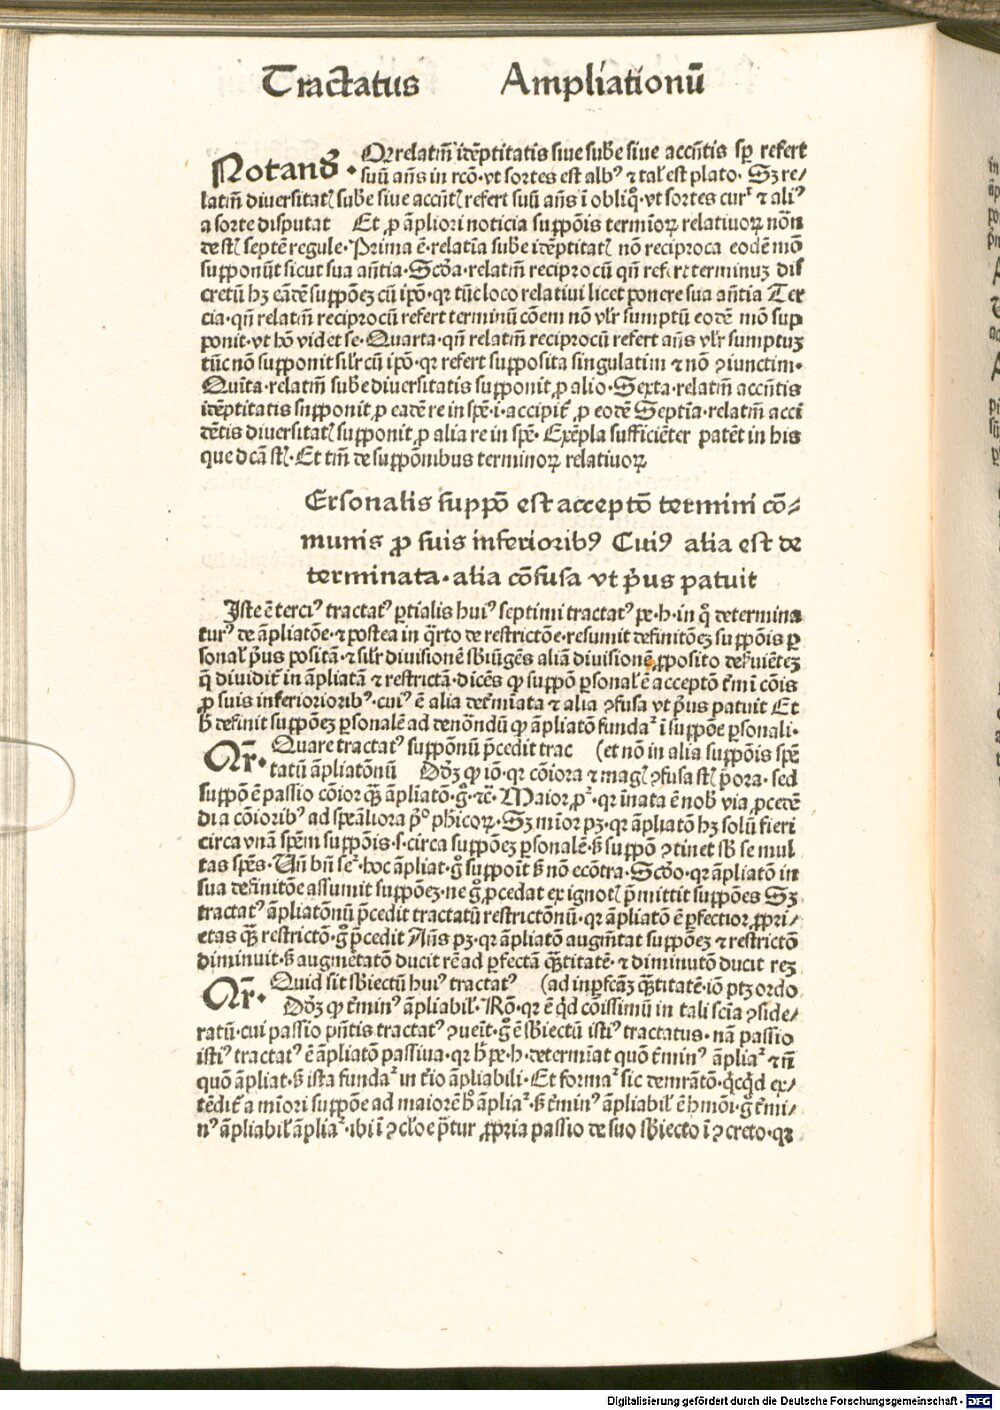 Tractatus Ampliationū
Notand̄ · Qꝫ relatm̄ idēptitatis siue sub̄e siue accn̄tis sp̄ refert
suū an̄s in rcō· vt sortes est albꝰ ⁊ tal̄ est plato· Sꝫ re⸗
latm̄ diuersitatꝭ sub̄e siue accn̄tꝭ refert suū an̄s ī obliq̊· vt sortes curᷣ ⁊ aliꝰ
a sorte disputat Et ꝓ āpliori noticia suppōis termīoꝝ relatiuoꝝ nōn
de stꝭ septē regule· Prima ē· relatīa sub̄e idēptitatꝭ nō reciproca eodē mō
supponūt sicut sua an̄tia· Scd̄a· relatm̄ reciprocū qn̄ refert terminuꝫ dis
cretū hꝫ eādē suppōeꝫ cū ip̄o· qꝛ tūc loco relatiui licet ponere sua an̄tia Ter
cia· qn̄ relatm̄ reciprocū refert terminū cōem nō vl̄r sumptū eodē mō sup
ponit· vt hō videt se· Quarta· qn̄ relatm̄ reciprocū refert an̄s vl̄r sumptuꝫ
tūc nō supponit sil̄r cū ip̄o· qꝛ refert supposita singulatim ⁊ nō ꝯiunctim·
Quīta· relatm̄ sub̄e diuersitatis supponit ꝓ alio· Sexta· relatm̄ accn̄tis
idēptitatis snpponit ꝓ eadē re in spē· i· accipit᷑ ꝓ eodē Septīa· relatm̄ acci
dētis diuersitatꝭ supponit ꝓ alia re in spē· Exēpla sufficiēter patēt in his
que dc̄a sꝉ· Et tm̄ de suppōnibus terminoꝝ relatiuoꝝ
Ersonalis suppō est acceptō termini cō⸗
munis ꝓ suis inferioribꝰ Cuiꝰ alia est de
terminata· alia cōfusa vt p̄us patuit
Iste ē terciꝰ tractatꝰ ꝑtialis huiꝰ septimi tractatꝰ pe· h· in q̄ determina
turꝰ de āpliatōe· ⁊ postea in q̄rto de restrictōe· resumit definitōeꝫ suppōis ꝑ
sonal̄ p̄us positā· ⁊ sil̄r diuisionē sb̄iūgēs aliā diuisionē ꝓposito deſuiēteꝫ
q̄ diuidit᷑ in āpliatā ⁊ restrictā· dicēs ꝙ suppō ꝑsonal̄ ē acceptō t̄mī cōis
ꝓ suis inferioribꝰ· cuiꝰ ē alia det̄mīata ⁊ alia ꝯfusa vt p̄us patuit Et
h̄ definit suppōeꝫ ꝑsonalē ad denōndū ꝙ āpliatō fundaᷣ ī suppōe ꝑsonali·
Qr̄· Quare tractatꝰ suppōnū p̄cedit trac (et nō in alia suppōis spē
tatū āpliatōnū Dd̄ꝫ ꝙ iō· qꝛ cōiora ⁊ magꝭ ꝯfusa stꝭ p̄ora· sed
suppō ē passio cōior qꝫ āpliatō· g̊· ⁊c̄· Maior pᷣ· qꝛ īnata ē nob̄ via ꝓcedē
di a cōioribꝰ ad speāliora p̄º ph̄icoꝝ· Sꝫ mīor pꝫ· qꝛ āpliatō hꝫ solū fieri
circa vnā spēm suppōis· s· circa suppōeꝫ ꝑsonalē· s̄ suppō ꝯtinet sb̄ se mul
tas spēs· Un̄ bn̄ seᷣ· hoc āpliat· g̊ suppoīt s̄ nō ecōtra· Scd̄o· qꝛ āpliatō in
sua definitōe assumit suppōeꝫ· ne g̊ ꝓcedat ex ignotꝭ p̄mittit suppōes Sꝫ
tractatꝰ āpliatōnū p̄cedit tractatū restrictōnū· qꝛ āpliatō ē ꝑfectior ꝓpri⸗
etas qꝫ restrictō· g̊ p̄cedit An̄s pꝫ· qꝛ āpliatō augm̄tat suppōeꝫ ⁊ restrictō
diminuit· s̄ augmētatō ducit rē ad ꝑfectā qꝫtitatē· ⁊ diminutō ducit reꝫ
Qr̄· Quid sit sb̄iectū huiꝰ tractatꝰ (ad inꝑfcāꝫ qꝫtitatē· iō ptꝫ ordo
Dd̄ꝫ ꝙ t̄minꝰ āpliabil̄· Rō· qꝛ ē q̄d cōissimū in tali scīa ꝯside⸗
ratū· cui passio pn̄tis tractatꝰ ꝯueīt· g̊ ē sb̄iectū istiꝰ tractatus· nā passio
istiꝰ tractatꝰ ē āpliatō passiua· qꝛ h̄ pe· h· determīat quō t̄minꝰ āpliaᷣ ⁊ n̄
quō āpliat· s̄ ista fundaᷣ in t̄io āpliabili· Et formaᷣ sic demrātō· q̇cq̇d ex⸗
tēdit᷑ a mīori suppōe ad maiorē h̊ āpliaᷣ· s̄ t̄minꝰ āpliabil̄ ē h̄mōi· g̊ t̄mi⸗
nꝰ āpliabil̄ āpliaᷣ· ibi ī ꝯcl̄oe p̄tur ꝓpria passio de suo sb̄iecto ī ꝯcreto· qꝛ
Digitalisierung gefördert durch die Deutsche Forschungsgemeinschaft - DFG